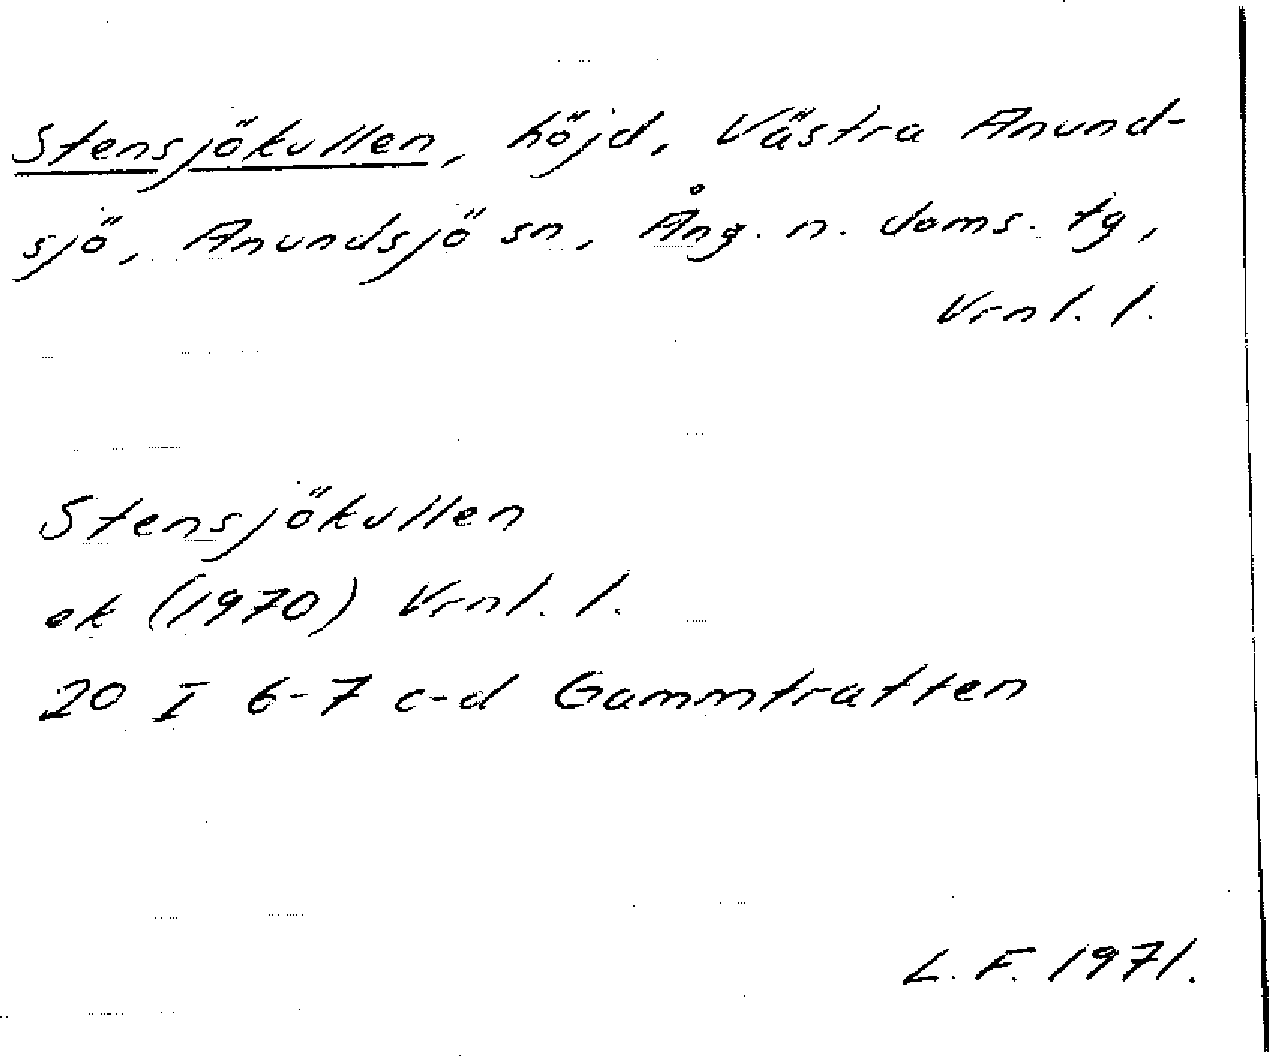 Stensjökullen, höjd, Västra Anund-
sjö, Anundsjö sn, Ång. n. doms. tg,
Vrnl. l.
Stensjökullen
ek (1970) Vrnl. l.
20 I 6-7 c-d Gammtratten
L. F. 1971.